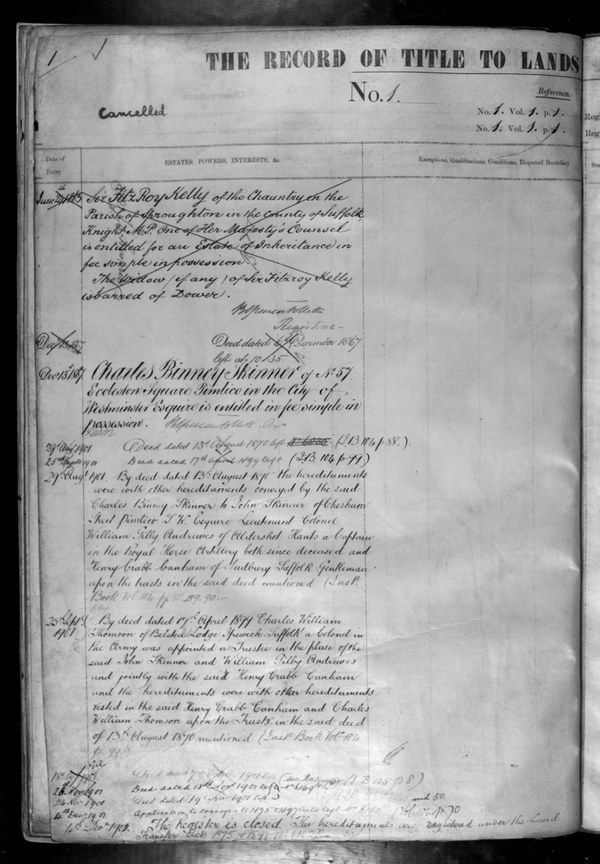 1
THE RECORD OF TITLE TO LANDS
No. 1.
Reference.
Cancelled
No. 1. Vol. 1. p. 1.
No. 1. Vol. 1. p. 1.
Date of Entry
ESTATES, POWERS, INTERESTS, &c.
Exemptions, Qualifications, Conditions, Disputed Boundary
Sir FitzRoy Kelly of the Chauntry in the
Parish of Sproughton in the County of Suffolk
Knight M.P. One of Her Majesty's Counsel
is entitled for an Estate of Inheritance in
fee simple in possession.
The Widow (if any) of Sir Fitzroy Kelly
is barred of Dower.
Registrar
Deed dated December 1867
left at 10.35
Charles Binney Skinner of No. 57
Eccleston Square Pimlico in the City of
Westminster Esquire is entitled in fee simple in
possession.
29 Aug 1901 Deed dated 13th August 1870 left (L B 104 p. 88.)
Deed dated 17th left (L B 104 p. 94)
29th Augt 1901. By deed dated 13th August 1870 the hereditaments
were with other hereditaments conveyed by the said
Charles Binny Skinner to John Skinner of Chesham
Street Pimlico S. W. Esquire Lieutenant Colonel
William Tilly Andrewes of Aldershot Hants a Captain
in the Royal Horse Artillery both since deceased and
Henry Crabb Canham of Sudbury Suffolk Gentleman
upon the trusts in the said deed mentioned (Inst.
Book Vol 104 pp 89. 90.
25 Sept 1901 By deed dated 17th April 1877 Charles William
Thomson of Belstead Lodge Ipswich Suffolk a Colonel in
the Army was appointed a Trustee in the place of the
said John Skinner and William Tilly Andrewes
and jointly with the said Henry Crabb Canham
and the hereditaments were with other hereditaments
vested in the said Henry Crabb Canham and Charles
William Thomson upon the Trusts in the said deed
of 13th August 1870 mentioned (Inst. Book Vol. 104
26 Nov 1901 Deed dated Novr 1901 left
26 Nov. 1901 Deed dated 19 Nov 1901 left
4th Decr 1901 Application to
The Register is closed. The hereditaments are registered under the Land
Transfer Acts 1875 & 1897